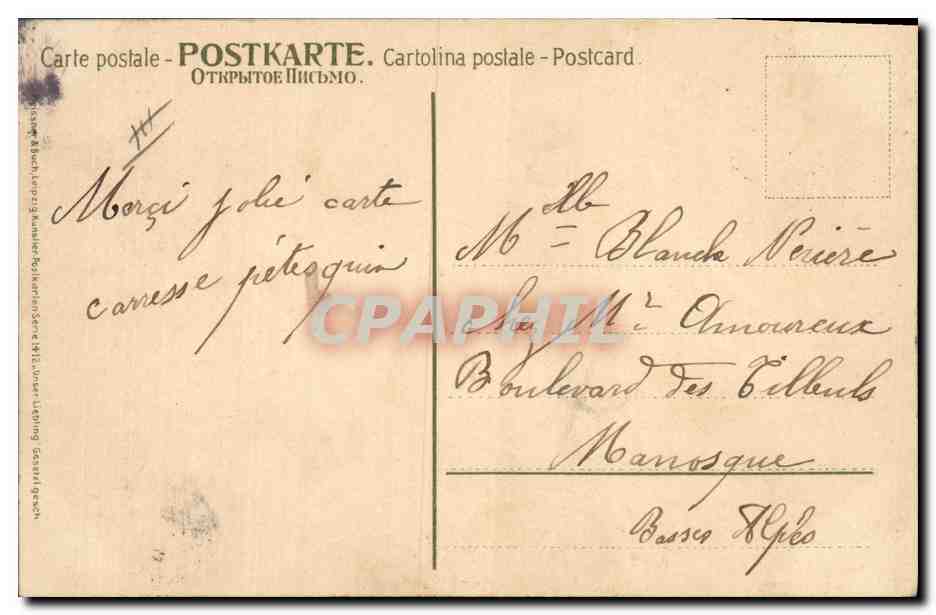 Carte postale - POSTKARTE. Cartolina postale - Postcard.
ОТКРЫТОЕ ПИСЬМО.
Meissner & Buch, Leipzig. Künstler-Postkarten Serie 1412 „Unser Liebling" Gesetzl. gesch.
Merçi jolie carte
carresse
Mlle Blanche
chez Mr Amoureux
Boulevard des Tilleuls
Manosque
Basses Alpes
CPAPHIL